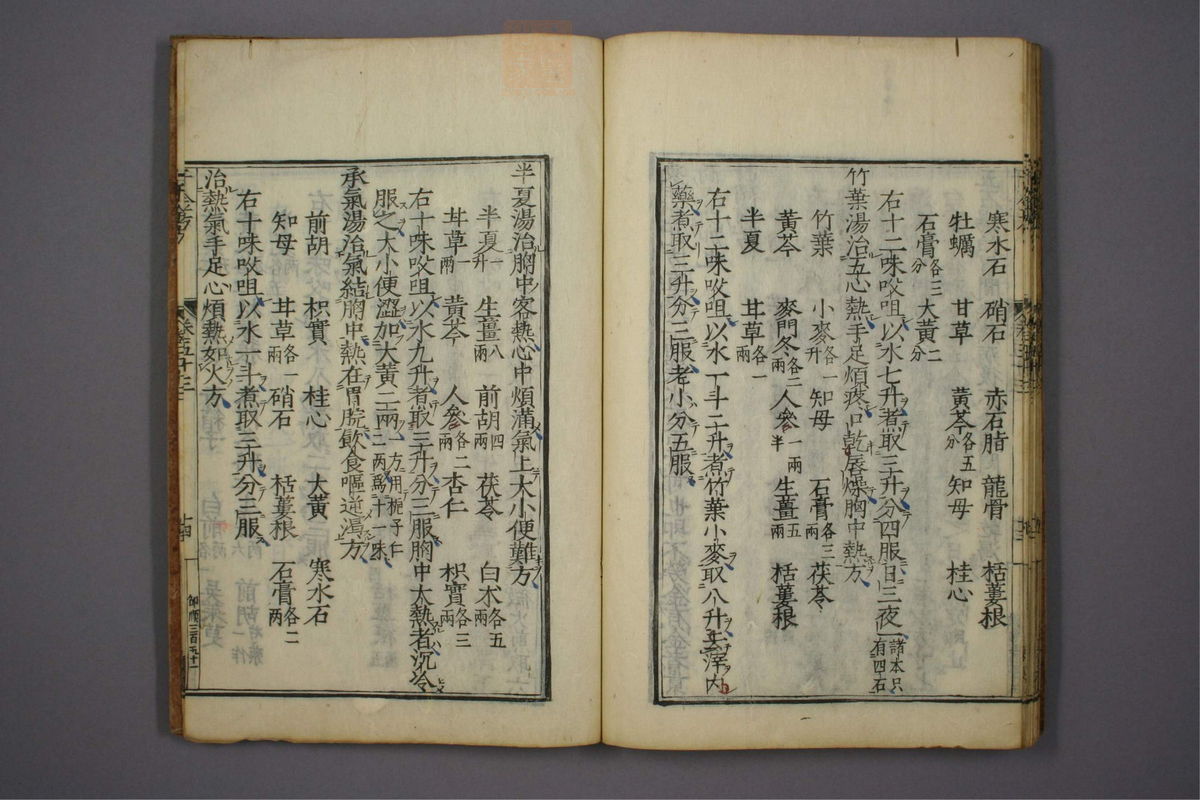 寒水石 硝石 赤石脂 龍骨 栝蔞根
牡蠣 甘草 黃芩各五分 知母 桂心
石膏各三分 大黃二分
右十二味㕮咀以水七升煮取三升分四服日三夜一諸本只有四石
竹葉湯治五心熱手足煩疼口乾唇燥胸中熱方
竹葉 小麥各一升 知母 石膏各三兩 茯苓
黃芩 麥門冬各二兩 人參一兩半 生薑五兩 栝蔞根
半夏 甘草各一兩
右十二味㕮咀以水一斗二升煮竹葉小麥取八升去滓内
藥煮取三升分三服老小分五服
半夏湯治胸中客熱心中煩滿氣上大小便難方
半夏一升 生薑八兩 前胡四兩 茯苓 白木各五兩
甘草一兩 黃芩 人參各二兩 杏仁 枳實各三兩
右十味㕮咀以水九升煮取三升分三服胸中大熱者沉冷
服之大小便澀加大黃二兩一方用梔子仁二兩爲十一味
承氣湯治氣結胸中熱在胃脘飲食嘔逆渴方
前胡 枳實 桂心 大黃 寒水石
知母 甘草各一兩 硝石 栝蔞根 石膏各二兩
右十味㕮咀以水一斗煮取三升分三服
治熱氣手足心煩熱如火方
十四